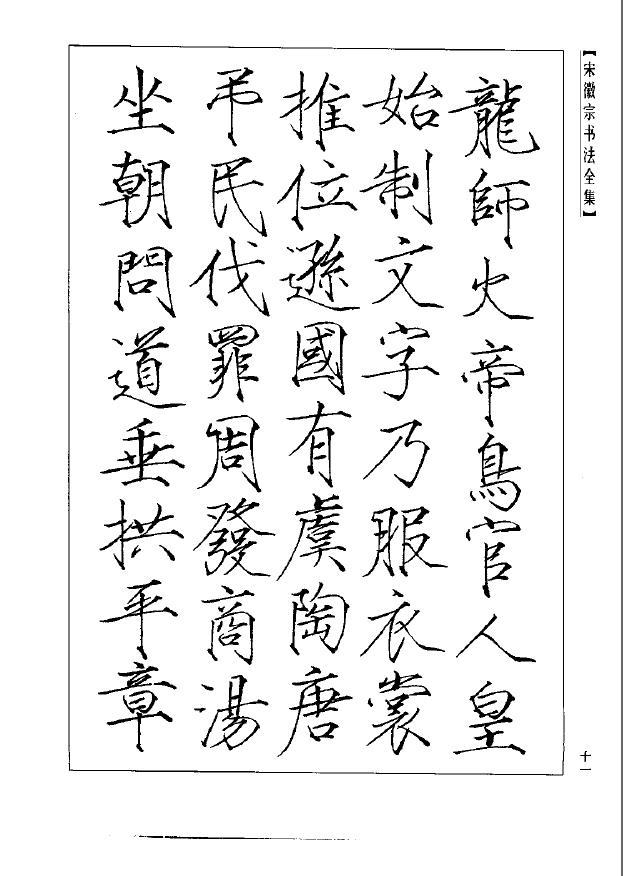 【宋徽宗书法全集】
龍師火帝鳥官人皇
始制文字乃服衣裳
推位遜國有虞陶唐
弔民伐罪周發商湯
坐朝問道垂拱平章
十一